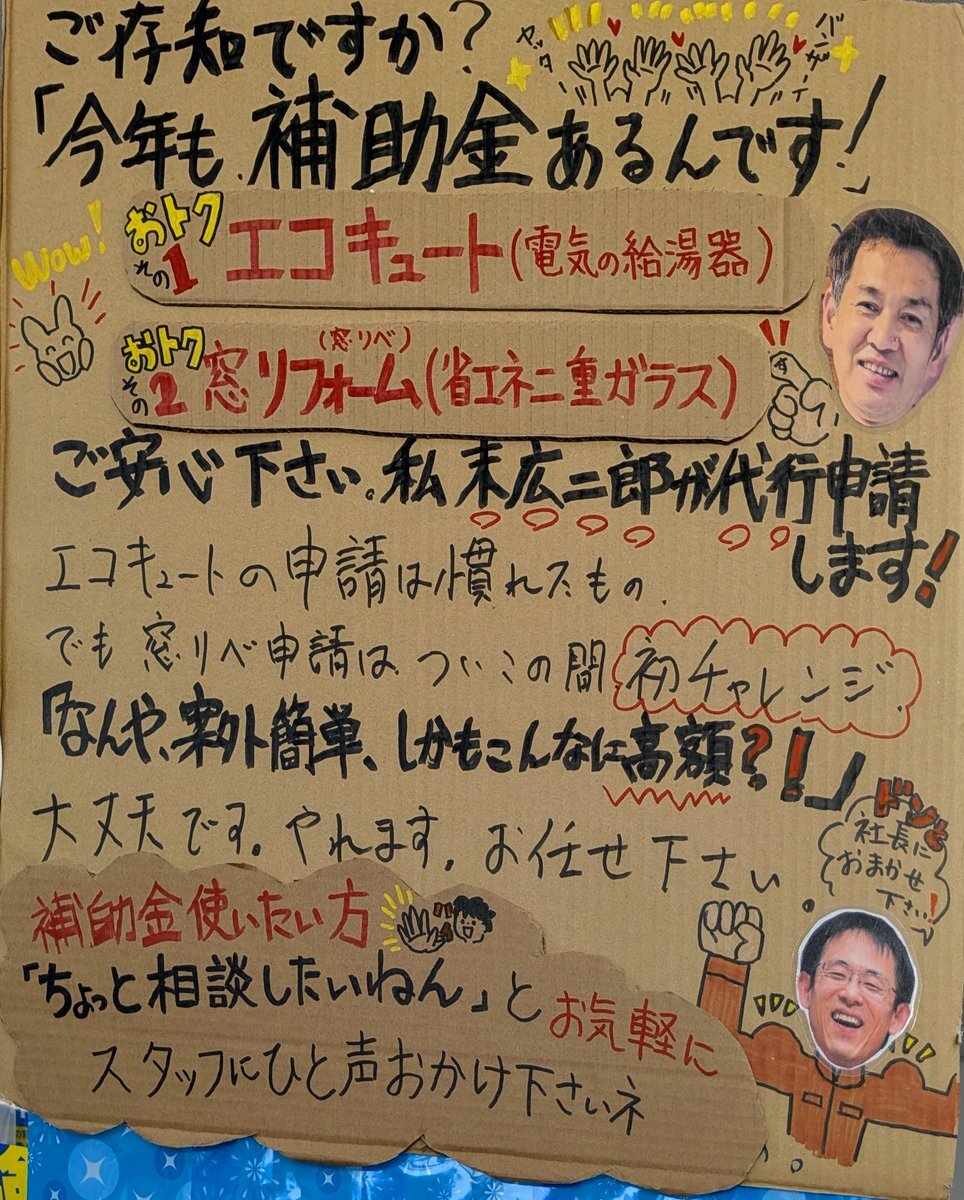 ご存知ですか?
ヤッター
バンザーイ
「今年も補助金あるんです!」
Wow!
おトクその1 エコキュート(電気の給湯器)
おトクその2 窓リフォーム(窓リベ)(省エネ二重ガラス)
ご安心下さい。私末広二郎が代行申請
します!
エコキュートの申請は慣れたもの、
でも窓リベ申請は、ついこの間初チャレンジ。
「なんや、案外簡単、しかもこんなに高額?!」
大丈夫です。やれます。お任せ下さい
ドンと
社長に
おまかせ
下さい!
補助金使いたい方
「ちょっと相談したいねん」とお気軽に
スタッフにひと声おかけ下さいネ